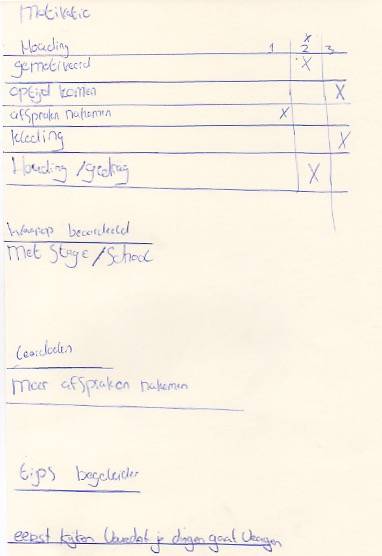 Motivatie
x
Houding 1 2 3
gemotiveerd X
optijd komen X
afspraken nakomen X
kleding X
Houding/gedrag X
waarop beoordeeld
Met Stage/School
Leerdoelen
Meer afspraken nakomen
tips begeleider
eerst kijken voordat je dingen gaat vragen